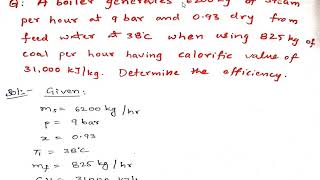 Q: A boiler generates 6200 kg of steam
per hour at 9 bar and 0.93 dry from
feed water @ 38°c when using 825 kg of
coal per hour having calorific value of
31,000 kJ/kg. Determine the efficiency.
Sol:- Given:
ms = 6200 kg/hr
p = 9 bar
x = 0.93
T1 = 38°c
mf = 825 kg/hr